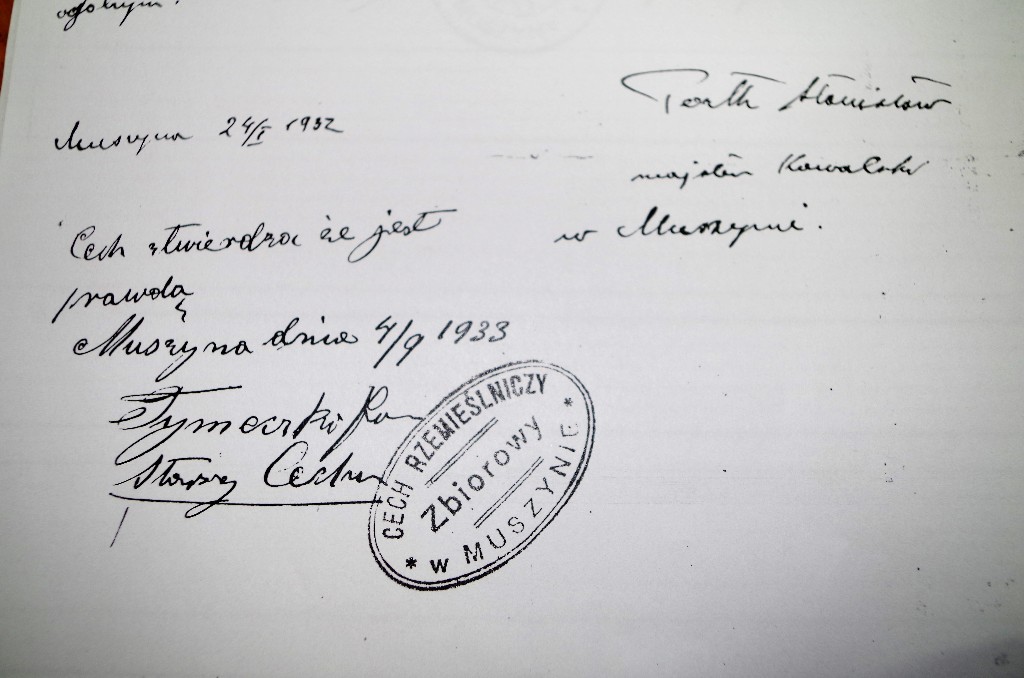 ogólnym.
Muszyna 24/I 1932
Porth Stanisław
majster Kowalski
w Muszynie.
Cech stwierdza że jest
prawdą
Muszyna dnia 4/9 1933
Tymeczki
Starszy Cechu
CECH RZEMIEŚLNICZY
Zbiorowy
* w MUSZYNIE *